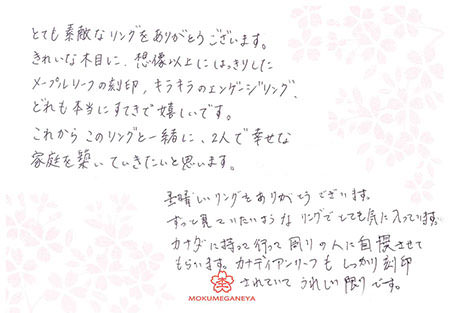 とても素敵なリングをありがとうございます。
きれいな木目に、想像以上にはっきりした
メープルリーフの刻印、キラキラのエンゲージリング、
どれも本当にすてきで嬉しいです。
これからこのリングと一緒に、2人で幸せな
家庭を築いていきたいと思います。
素晴しいリングをありがとうございます。
ずっと見ていたいようなリングでとても気に入っています。
カナダに持って行って周りの人に自慢させて
もらいます。カナディアンリーフもしっかり刻印
されていてうれしい限りです。
MOKUMEGANEYA